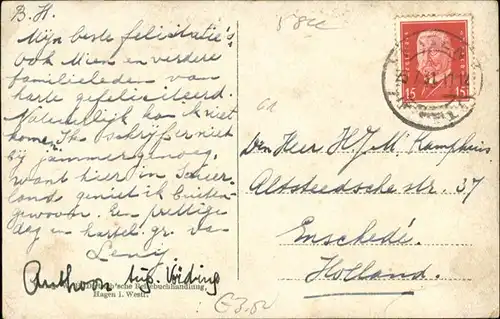 B. H.
Mijn beste felicitatie's
ook Mien en verdere
familieleden van
harte gefeliciteerd.
Natuurlijk kan k niet
komen. Ik schrijf er niet
bij jammer genoeg,
want hier in Sauer-
land geniet ik buiten
gewoon. Een prettige
dag en hartel. gr. van
Leny
Anthoon Aug.
Buchhandlung,
Hagen i. Westf.
Den Heer H.J.M. Kamphuis
Altsteedsche str. 37
Enschedé.
Holland.
15 15